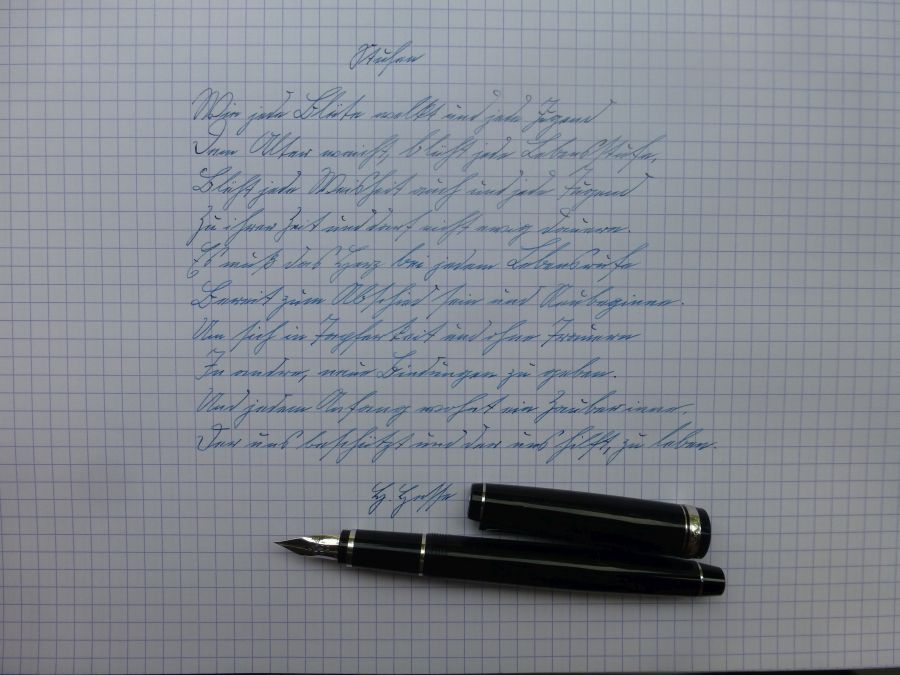 Stufen
Wie jede Blüte welkt und jede Jugend
Dem Alter weicht, blüht jede Lebensstufe,
Blüht jede Weisheit auch und jede Tugend
Zu ihrer Zeit und darf nicht ewig dauern.
Es muß das Herz bei jedem Lebensrufe
Bereit zum Abschied sein und Neubeginne.
Um sich in Tapferkeit und ohne Trauern
In andre, neue Bindungen zu geben.
Und jedem Anfang wohnt ein Zauber inne,
Der uns beschützt und der uns hilft, zu leben.
H. Hesse